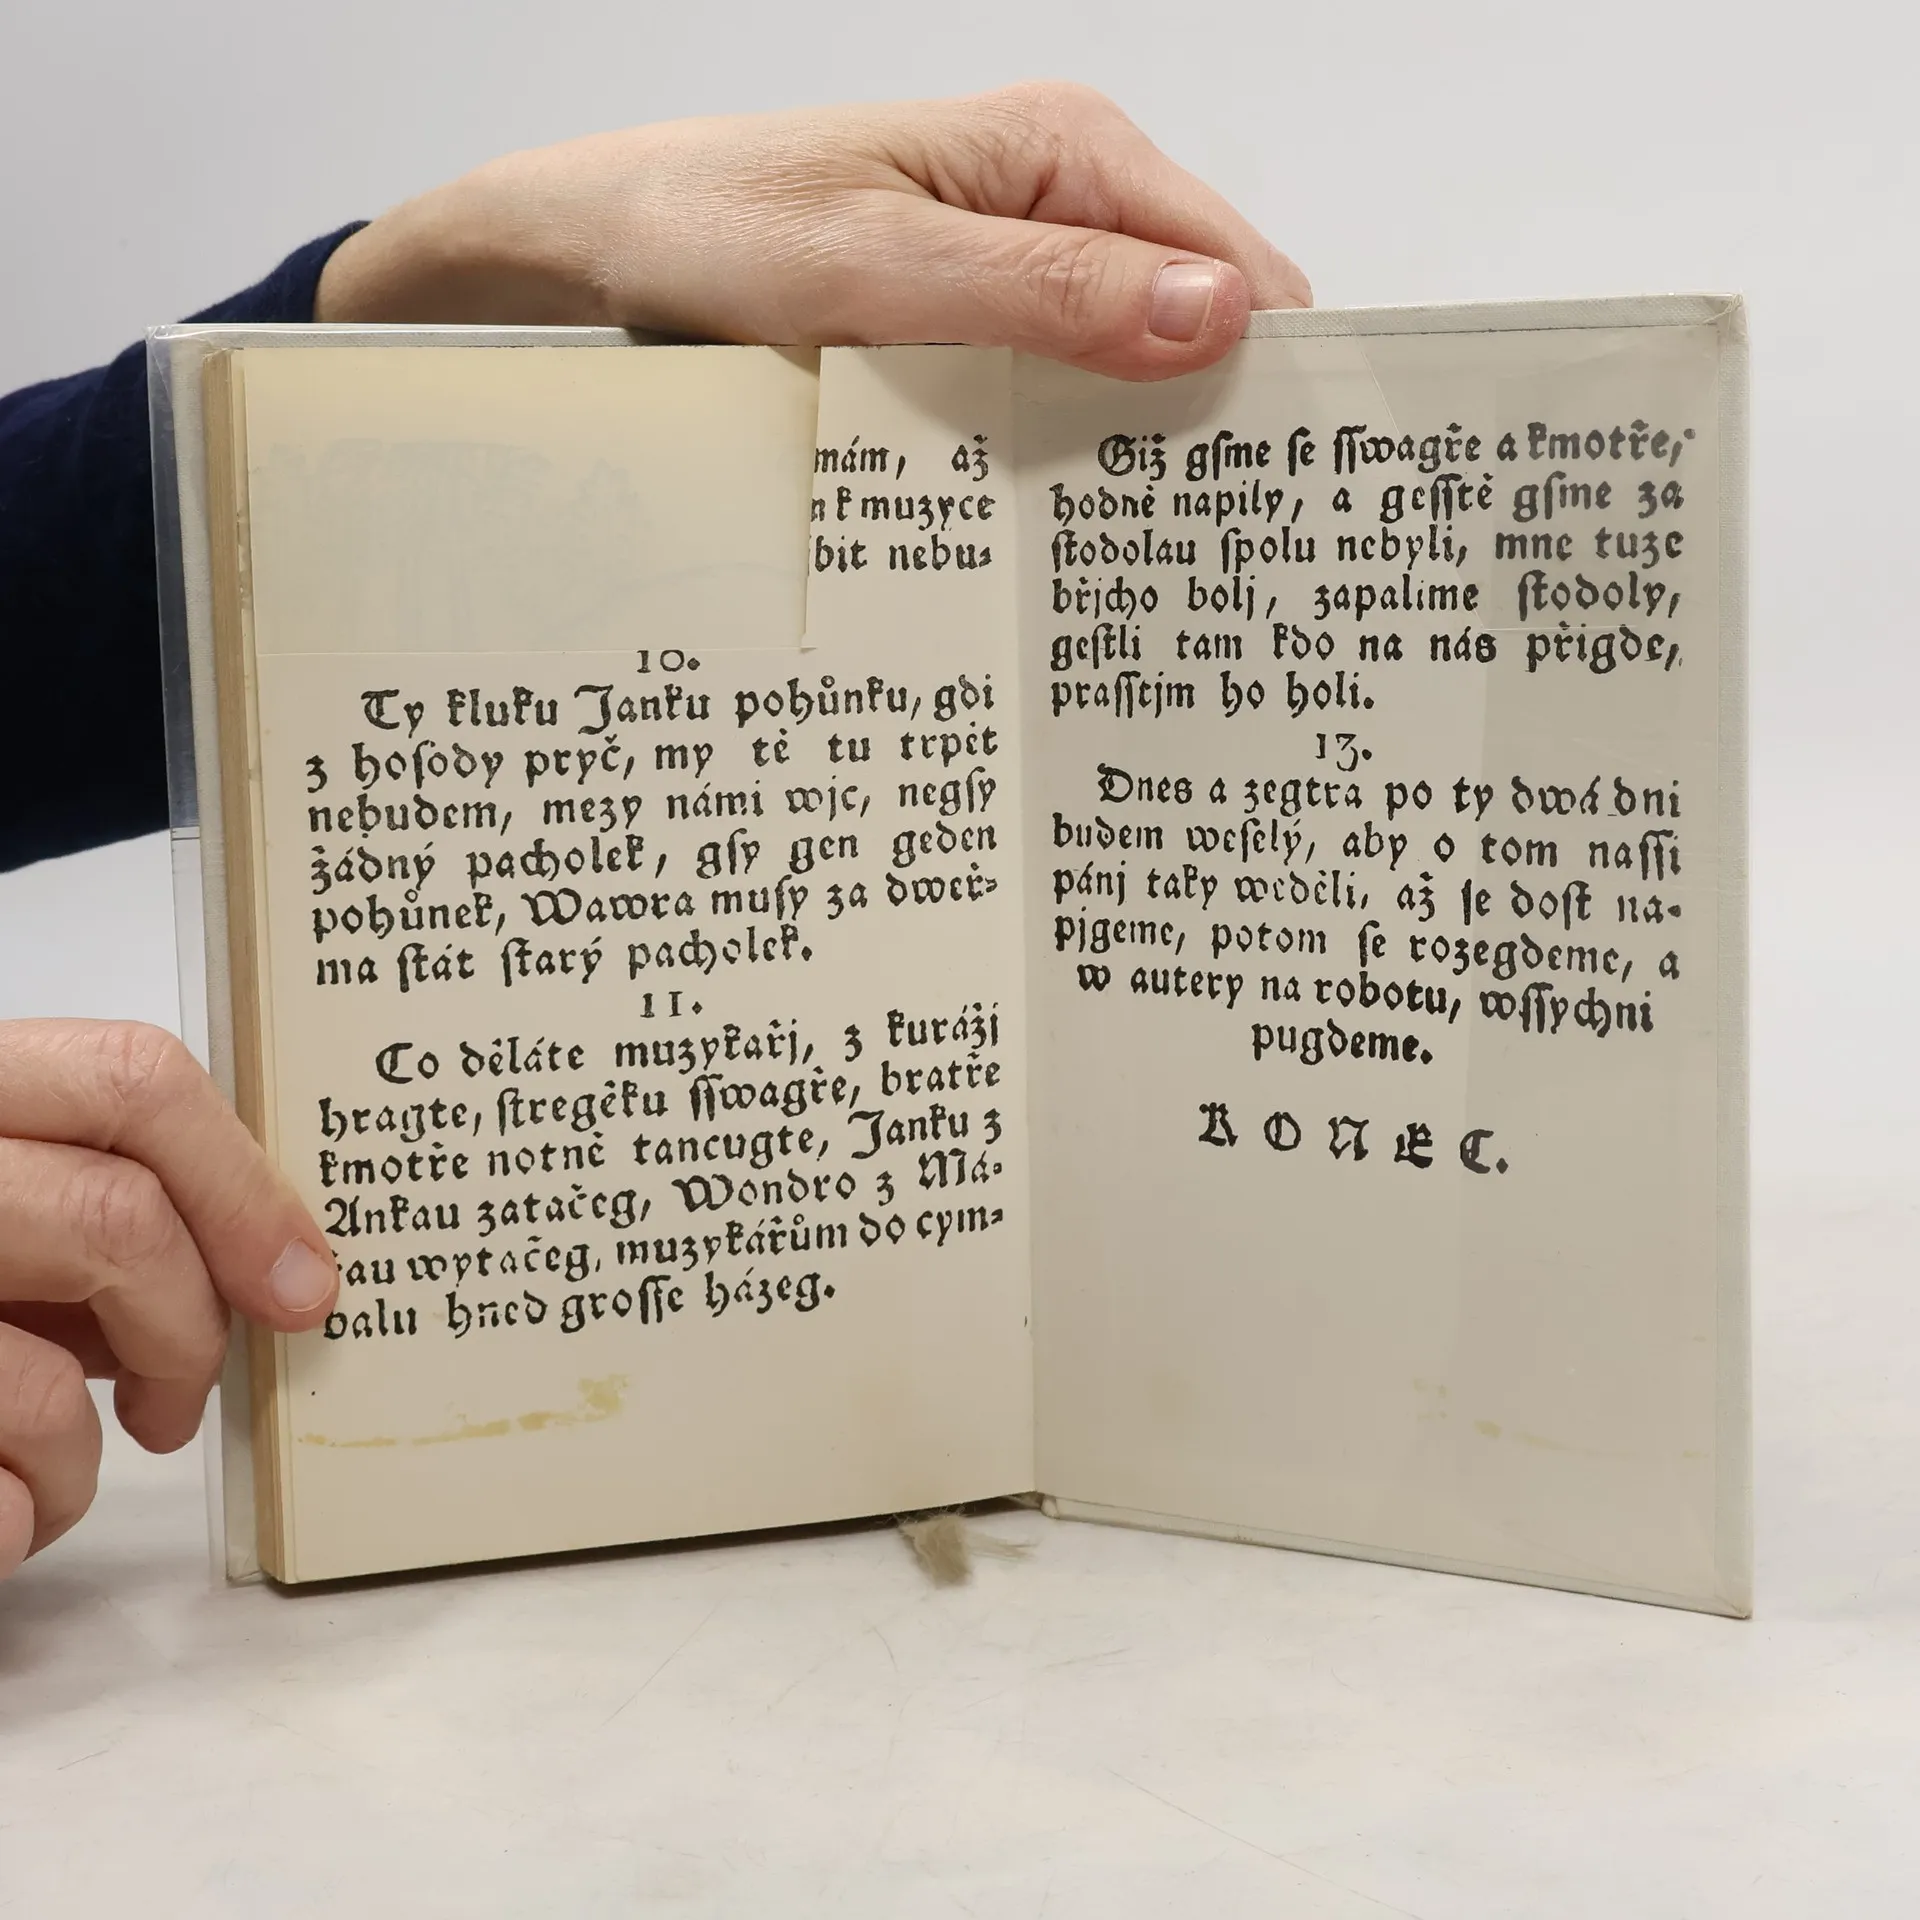 mám, až
k muzyce
bit nebu⸗
10.
Ty kluku Janku pohůnku, gdi
z hoſpody pryč, my tě tu trpět
nebudem, mezy námi wjc, negſy
žádný pacholek, gſy gen geden
pohůnek, Wawra muſy za dweř⸗
ma ſtát ſtarý pacholek.
11.
Co děláte muzykařj, z kurážj
hragte, ſtregčku ſſwagře, bratře
kmotře notně tancugte, Janku z
Ankau zatačeg, Wondro z Má⸗
řau wytačeg, muzykářům do cym⸗
balu hned groſſe házeg.
Giž gſme ſe ſſwagře a kmotře,
hodně napily, a geſſtě gſme za
ſtodolau ſpolu nebyli, mne tuze
břjcho bolj, zapalime ſtodoly,
geſtli tam kdo na nás přigde,
praſſtjm ho holi.
13.
Dnes a zegtra po ty dwá dni
budem weſelý, aby o tom naſſi
pánj taky wěděli, až ſe doſt na⸗
pjgeme, potom ſe rozegdeme, a
w autery na robotu, wſſychni
pugdeme.
KONEC.